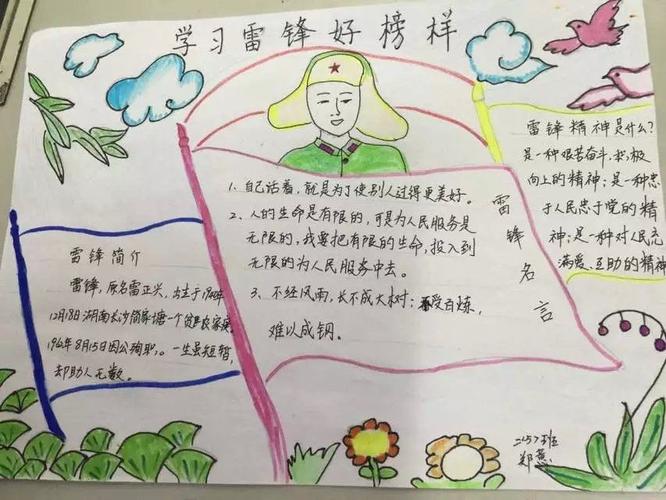 学习雷锋好榜样
雷锋精神是什么?
是一种艰苦奋斗,积极
向上的精神;是一种忠
于人民忠于党的精
神;是一种对人民充
满爱、互助的精神
雷锋名言
1、自己活着,就是为了使别人过得更美好。
2、人的生命是有限的,可是为人民服务是
无限的,我要把有限的生命,投入到
无限的为人民服务中去。
3、不经风雨,长不成大树;受百炼,
难以成钢。
雷锋简介
雷锋,原名雷正兴,出生于1940年
12月18日湖南长沙简家塘一个贫农家庭
8月15日因公殉职,。一生虽短暂,
却助人无数。
班
郑慧